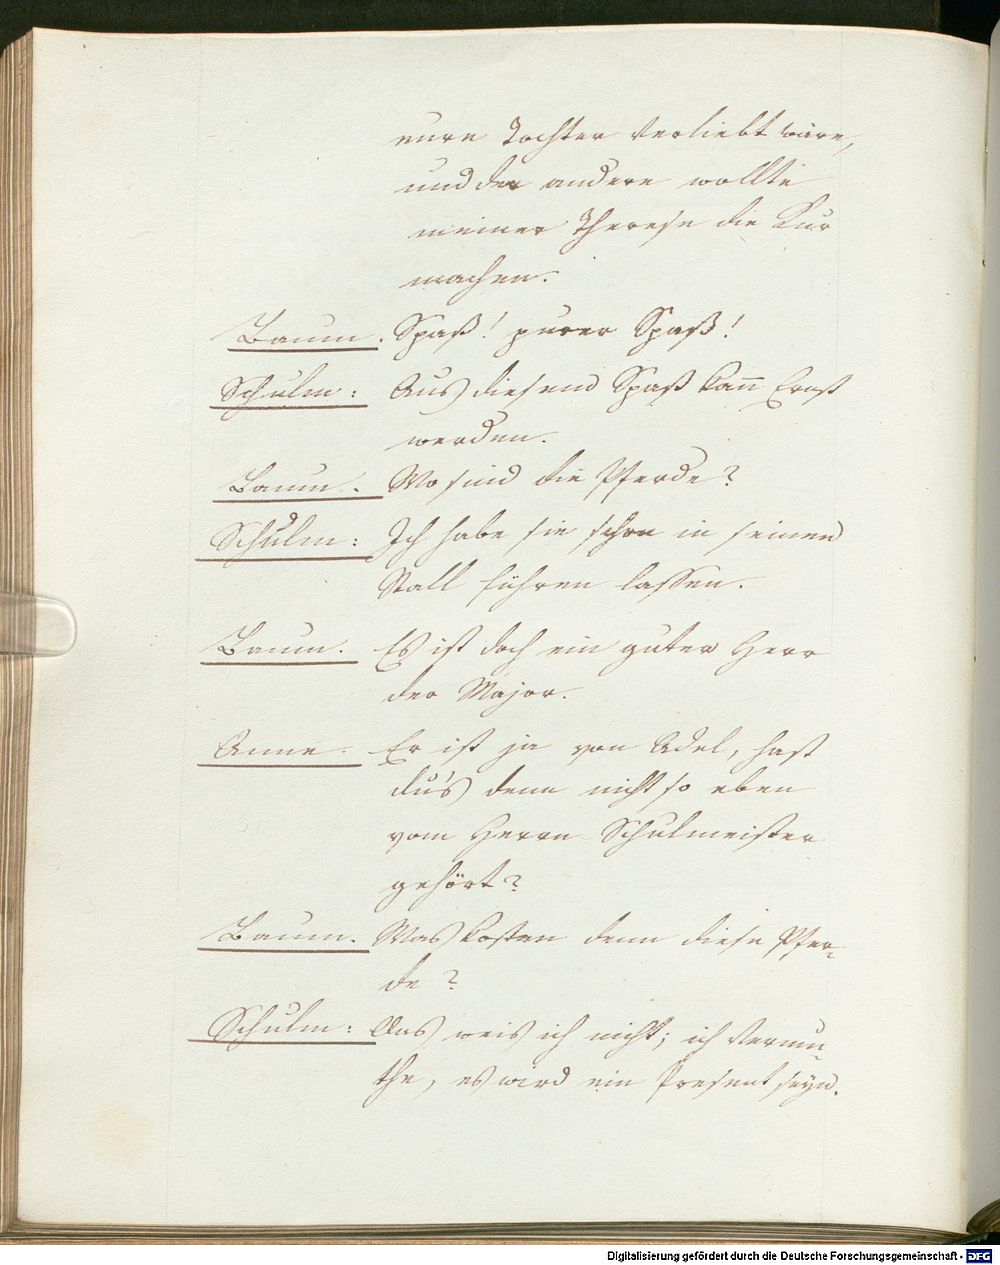 eure Tochter verliebt wäre,
und der andere wollte
meiner Therese die Kur
machen.
Baum. Spaß! purer Spaß!
Schulm: Aus diesend Spaß kann Ernst
werden.
Baum. Wo sind die Pferde?
Schulm: Ich habe sie schon in seinen
Stall führen lassen.
Baum. Es ist doch ein guter Herr
der Major.
Anne. Er ist ja von Adel, hast
du's denn nicht so eben
vom Herrn Schulmeister
gehört?
Baum. Was kosten denn diese Pfer-
de?
Schulm: Das weis ich nicht; ich vermu-
the, es wird ein Present seyn.
Digitalisierung gefördert durch die Deutsche Forschungsgemeinschaft - DFG